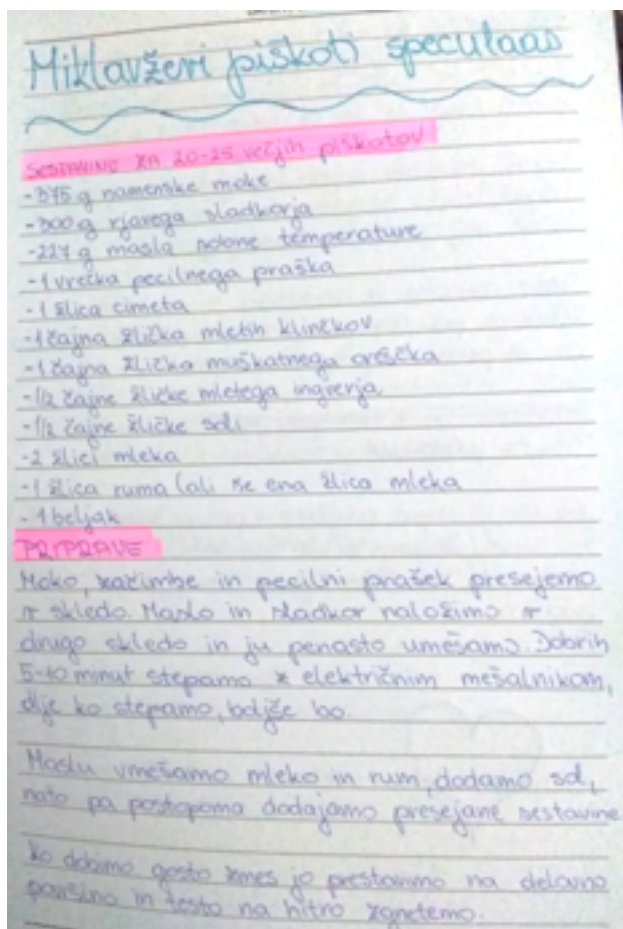 Miklavževi piškoti speculaas
SESTAVINE ZA 20-25 večjih piškotov
-375 g namenske moke
-300 g rjavega sladkorja
-227 g masla sobne temperature
-1 vrečka pecilnega praška
-1 žlica cimeta
-1 čajna žlička mletih klinčkov
-1 čajna žlička muškatnega oreščka
-1/2 čajne žličke mletega ingverja
-1/2 čajne žličke soli
-2 žlici mleka
-1 žlica ruma (ali še ena žlica mleka
-1 beljak
PRIPRAVE
Moko, začimbe in pecilni prašek presejemo
v skledo. Maslo in sladkor naložimo v
drugo skledo in ju penasto umešamo. Dobrih
5-10 minut stepamo z električnim mešalnikom,
dlje ko stepamo, boljše bo.
Maslu vmešamo mleko in rum, dodamo sol,
nato pa postopoma dodajamo presejane sestavine
Ko dobimo gosto zmes jo prestavimo na delovno
površino in testo na hitro zgnetemo.